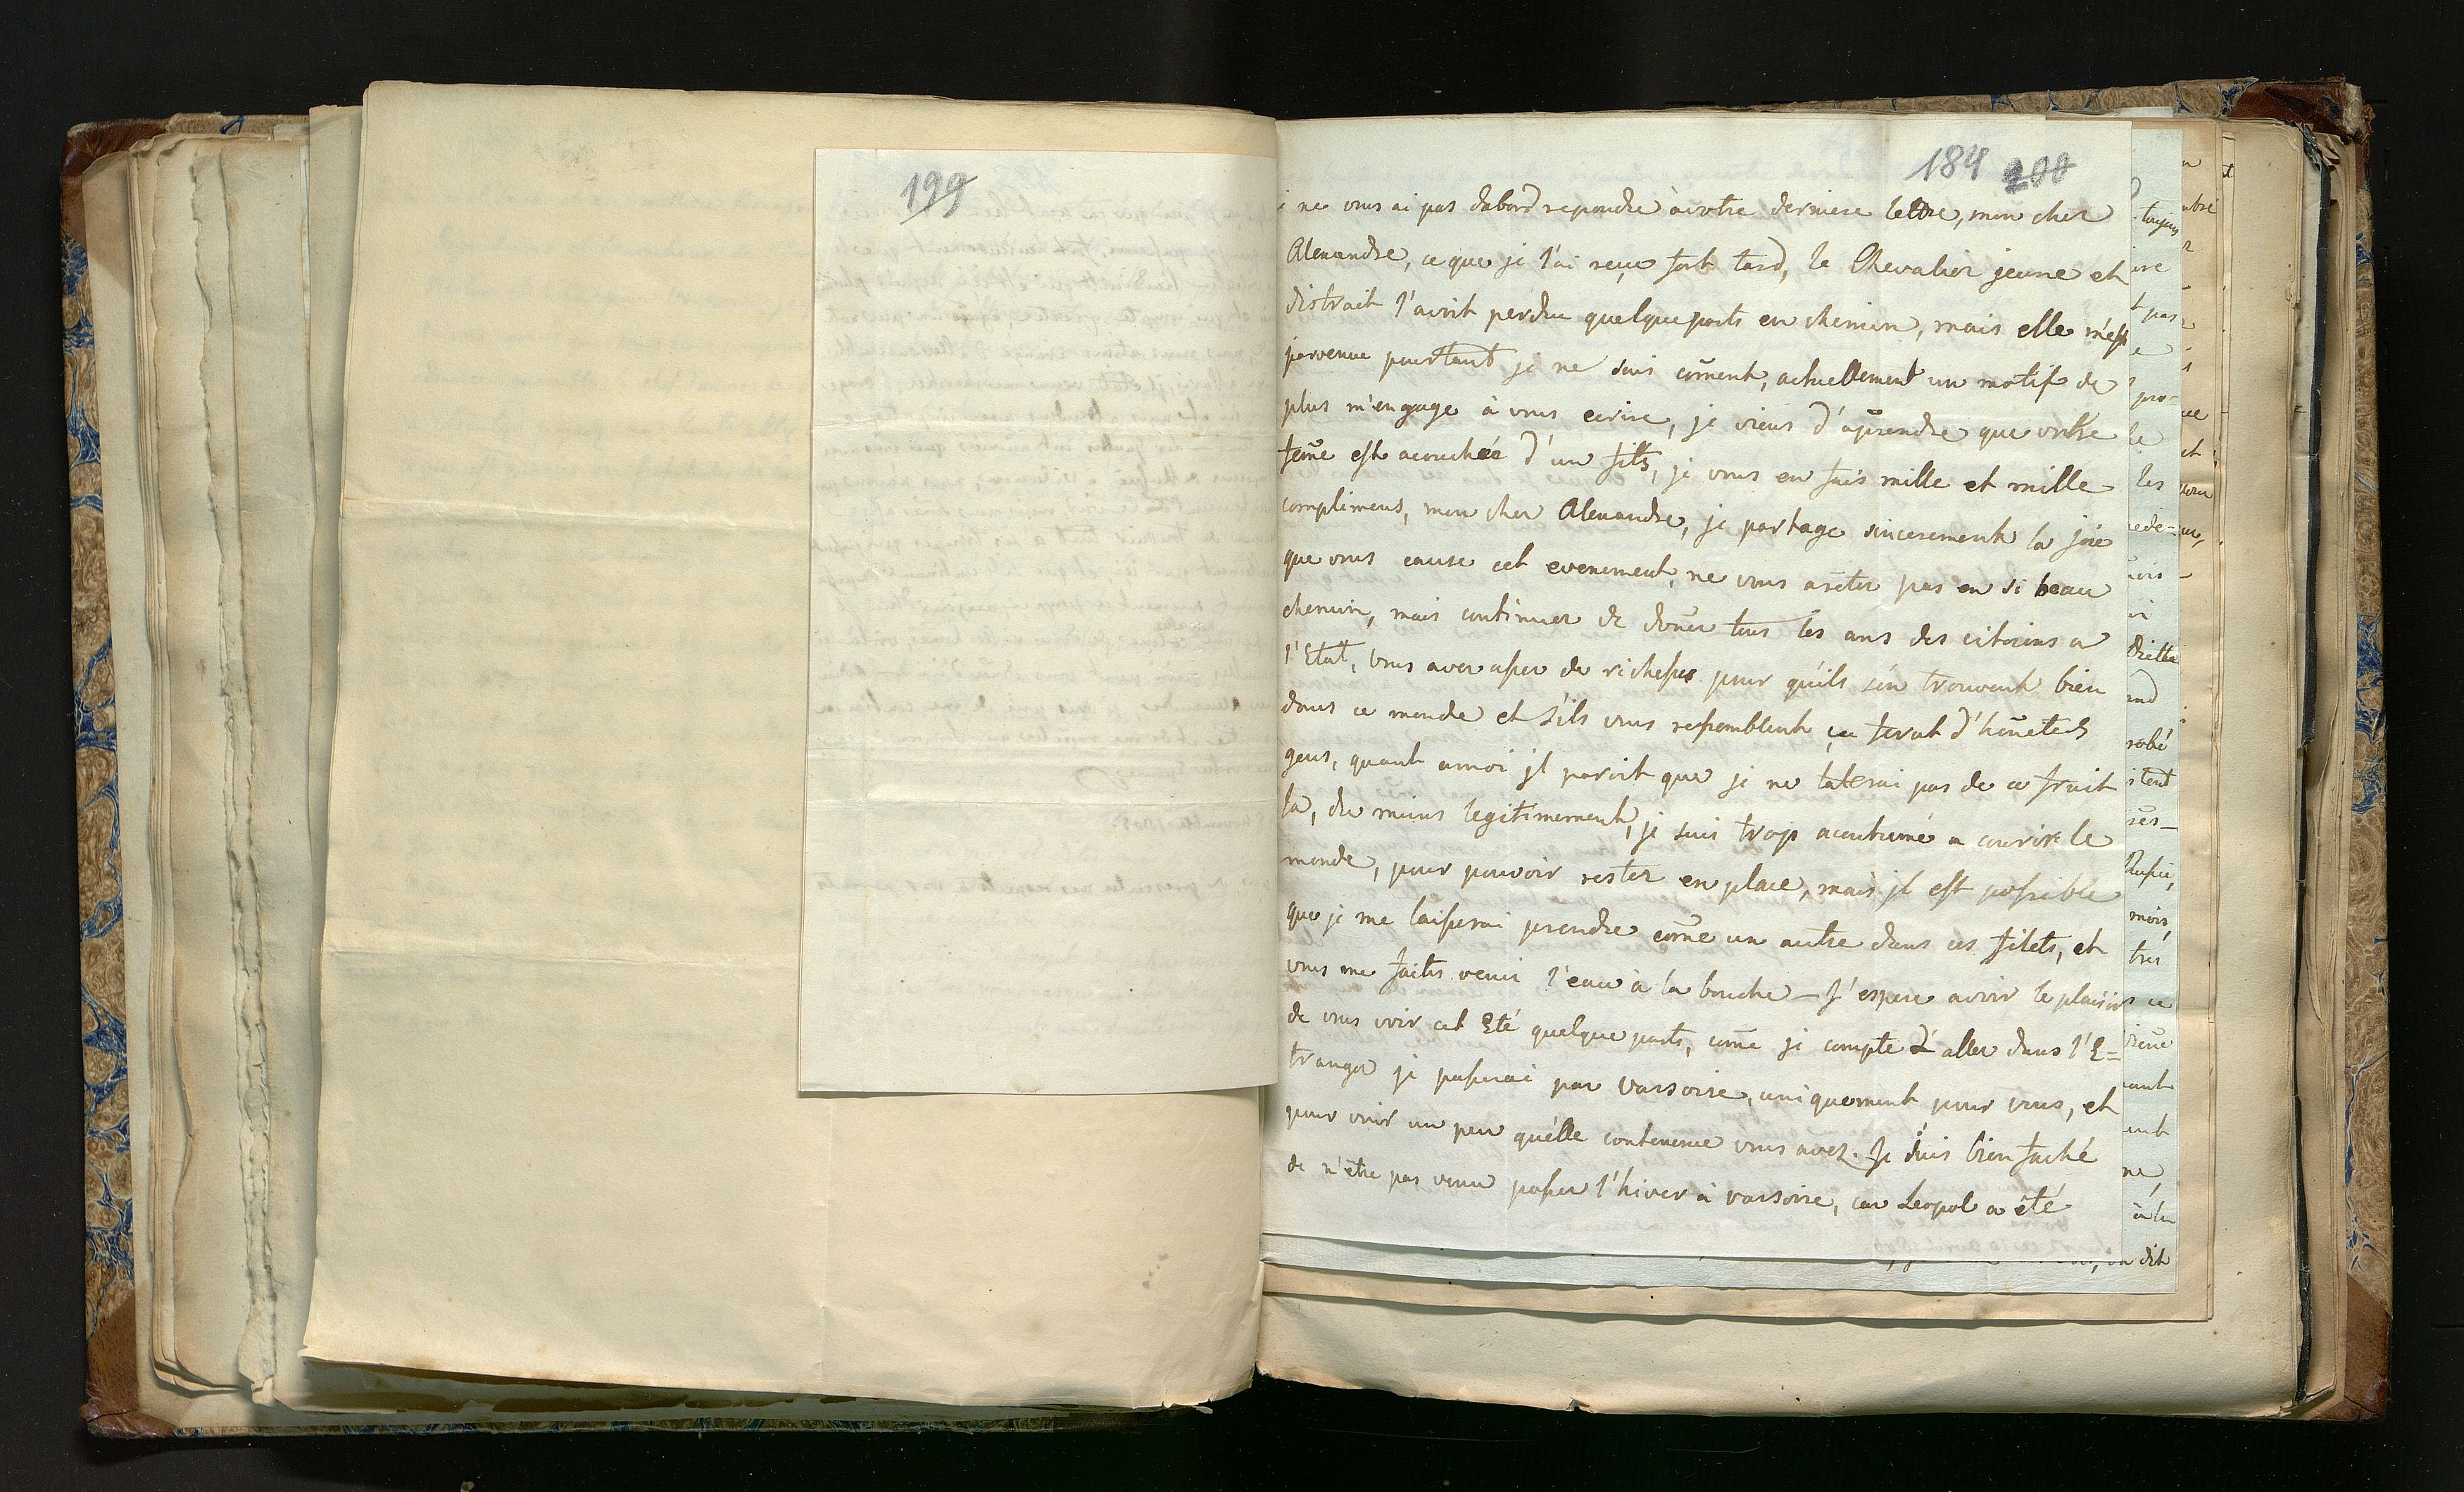 199
184 200
ne vous ai pas dabord repondre à votre derniere lettre, mon cher
Alexandre, ce que je l'ai reçue fort tard, le Chevalier jeune et
distrait l'avoit perdue quelqueparts en chemin, mais elle m'est
parvenue pourtant je ne sais com̄ent, actuellement un motif de
plus m'engage à vous ecrire, je viens d'ap̄rendre que votre
fem̄e est acouchée d'un fils, je vous en fais mille et mille
complimens, mon cher Alexandre, je partage sincerement la joie
que vous cause cet evenement, ne vous areter pas en si beau
chemin, mais continuer de don̄er tous les ans des citoiens a
l'Etat, vous aver asser de richesses pour qu'ils s'en trouvent bien
dans ce monde et s'ils vous ressemblent ça serat d'hon̄etes
gens, quant amoi jl paroit que je ne taterai pas de ce fruit
la, du moins legitimement, je suis trop acoutumé a courir le
monde, pour pouvoir rester en place, mais jl est possible
que je me laisserai prendre com̄e un autre dans ces filets, et
vous me faites venir l'eau à la bouche – J'espere avoir le plaisir
de vous voir cet Eté quelque parts, com̄e je compte d'aller dans l'E=
tranger je passerai par varsovie, uniquement pour vous, et
pour voir un peu qu'elle contenence vous avez. Je suis bien faché
de n'être pas venu passer l'hiver à varsovie, car Leopol a été